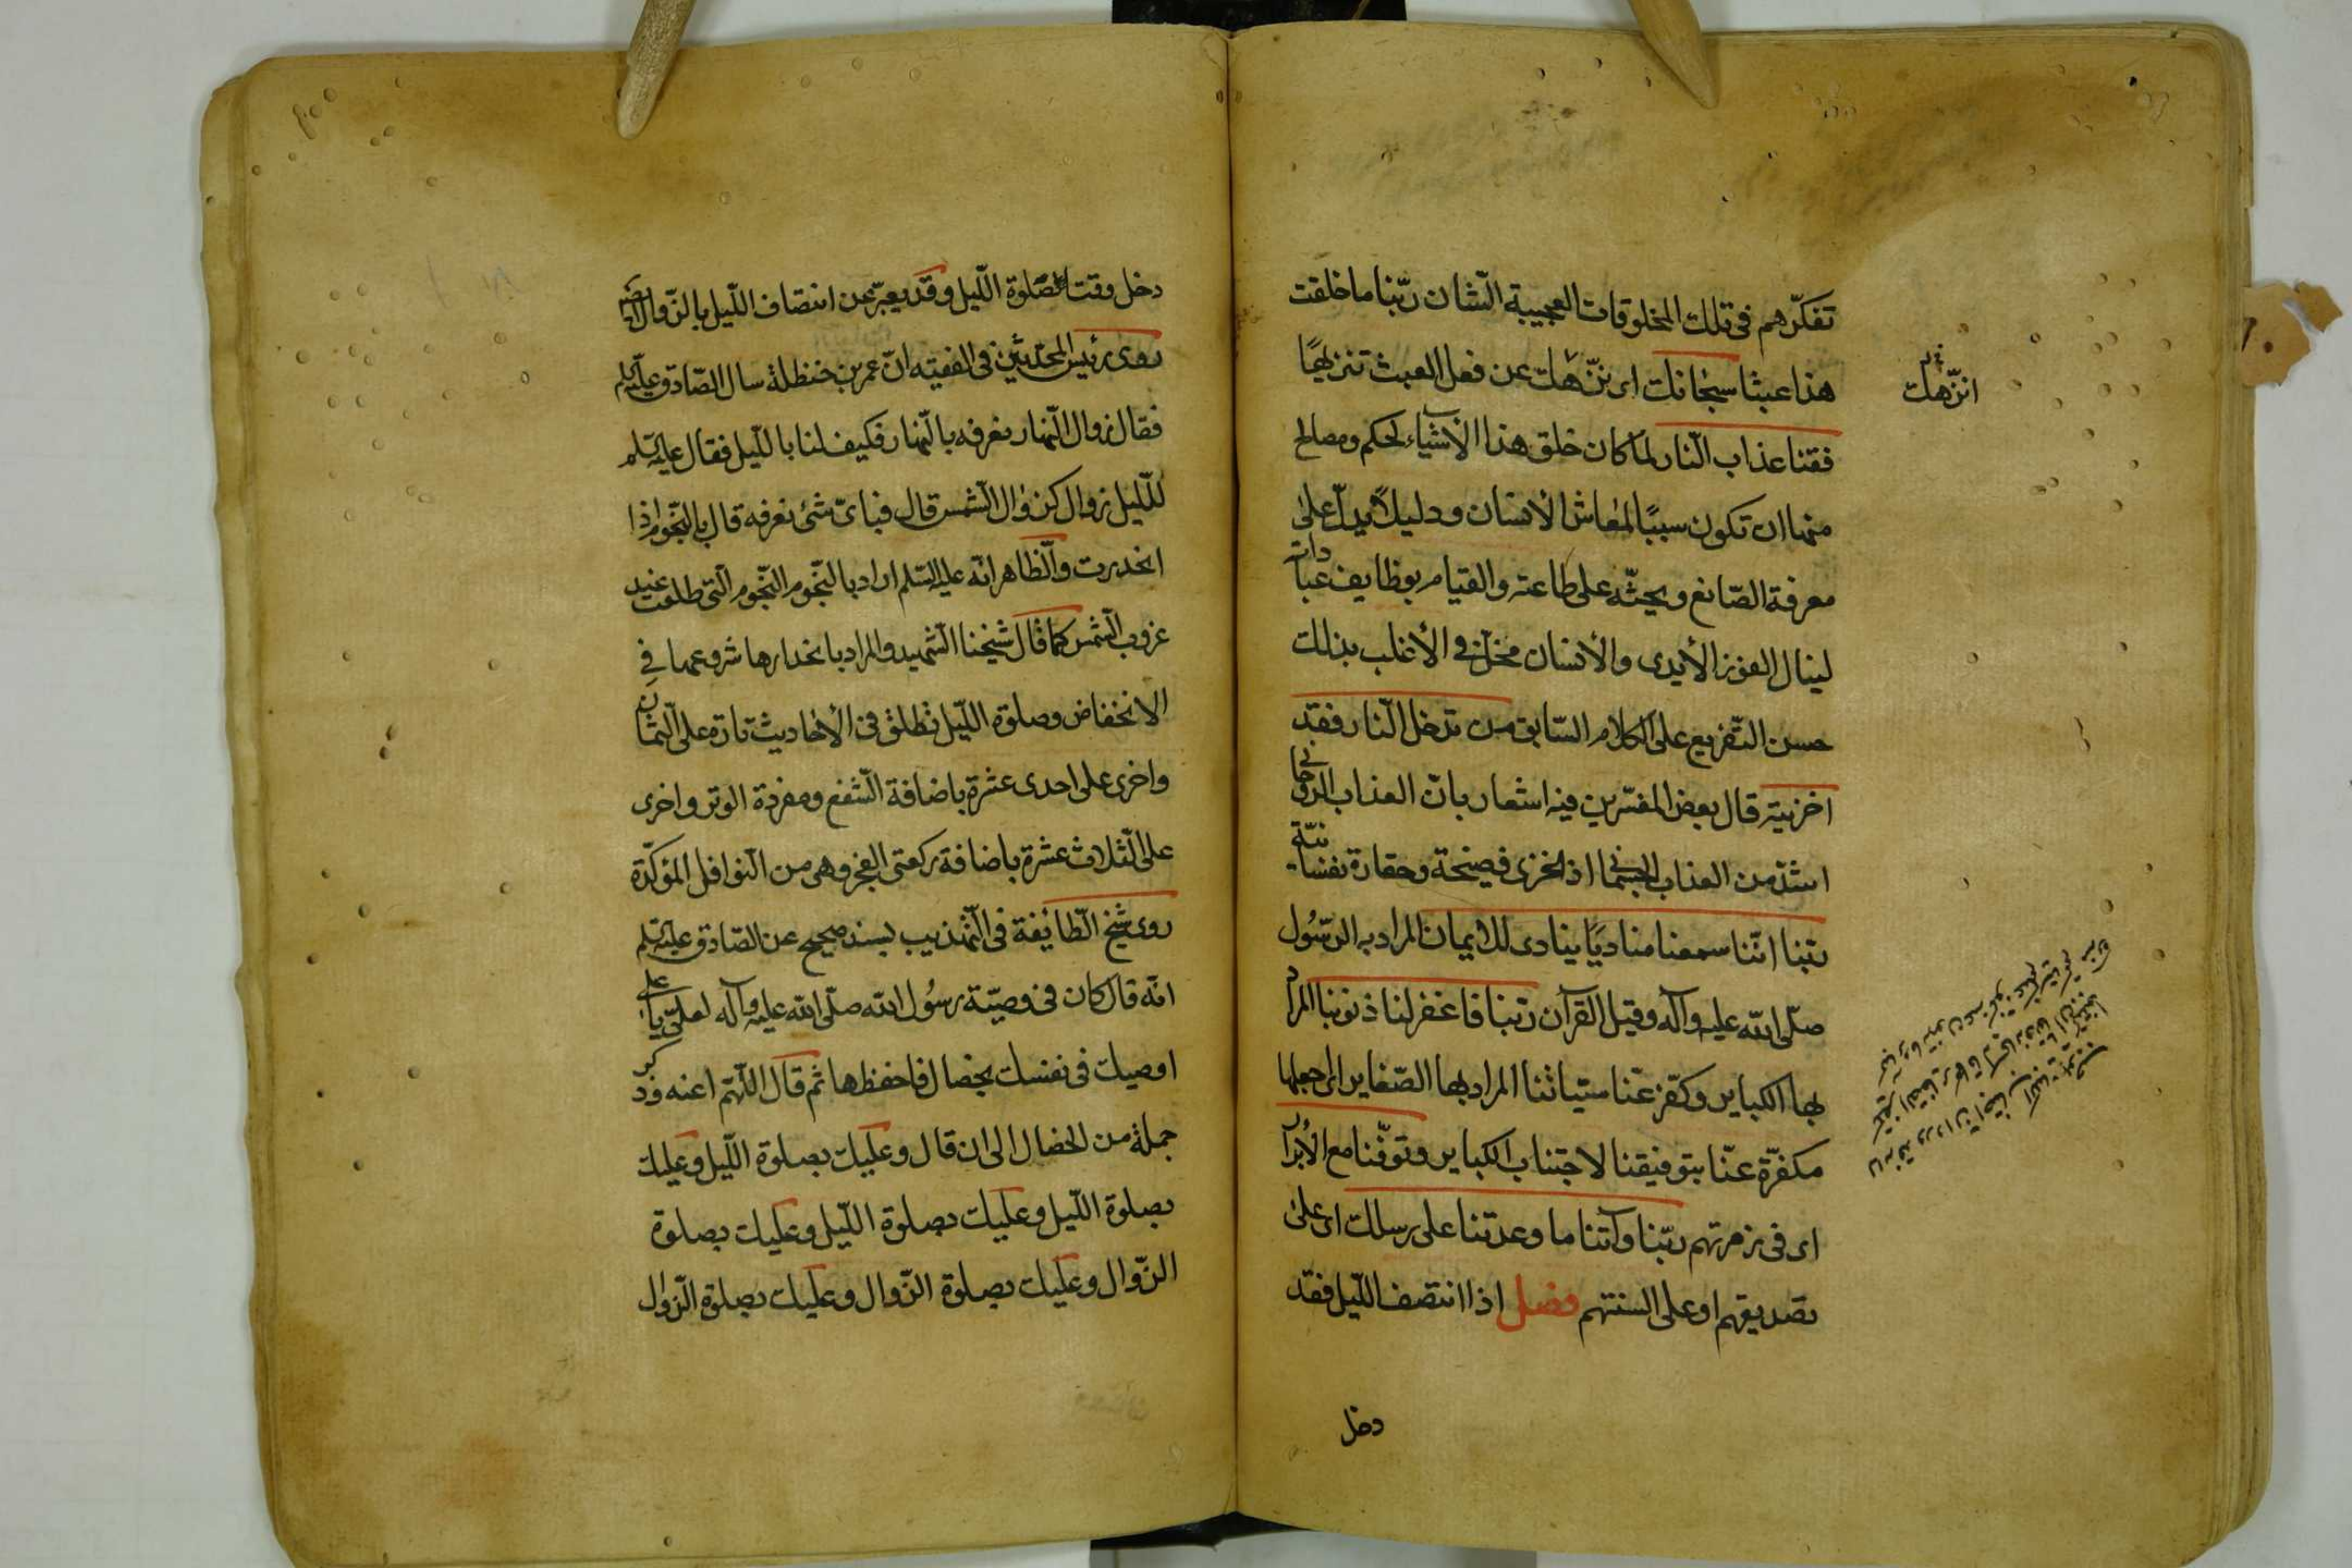 تفكّرهم فى تلك المخلوقات العجيبة الشان ربّنا ما خلقت
هذا عبثا سبحانك اى ننزّهك عن فعل العبث تنزيهًا
انزّهك
فقنا عذاب النّار لما كان خلق هذا الأشياء لحكم ومصالح
منها ان تكون سببًا لمعاش الأنسان ودليلًا يدلّ على
معرفة الصّانع ويحثّه على طاعته والقيام بوظايف عبادات
لينال الفوز الأبدى والأنسان مخلّ فى الأغلب بذلك
حسن التّفريع على الكلام السّابق من تدخل النّار فقد
اخزيته قال بعض المفسّرين فيه اشعار بانّ العذاب الرّوحانى
اشدّ من العذاب الجسمانى اذ الخزى فضيحة وحقارة نفسانيّة
ربّنا انّنا سمعنا مناديًا ينادى للايمان المراد به الرّسُول
صلّى الله عليه وآله وقيل القرآن ربّنا فاغفر لنا ذنوبنا المراد
بها الكباير وكفّر عنّا سيّئاتنا المراد بها الصّغاير اى اجعلها
مكفّرة عنّا بتوفيقنا لاجتناب الكباير وتوفّنا مع الأبرار
اى فى زمرتهم ربّنا وآتنا ما وعدتنا على رسلك اى على
تصديقهم او على السنتهم فصل اذا انتصف اللّيل فقد
دخل
دخل وقت صلوة اللّيل وقد يعبّر عن انتصاف اللّيل بالزّوال ايضا
روى رئيس المحدّثين فى الفقيه انّ عمر بن حنظلة سال الصّادق عليه السلم
فقال زوال النّهار نعرفه بالنّهار فكيف لنا باللّيل فقال عليه السّلم
للّيل زوال كزوال الشّمس قال فباىّ شئ نعرفه قال بالنّجوم اذا
انحدرت والظّاهر انّه عليه السّلم اراد بالنّجوم النّجوم الّتى طلعت عند
غروب الشّمس كما قال شيخنا الشّهيد والمراد بانحدارها شروعها فى
الانخفاض وصلوة اللّيل تطلق فى الأحاديث تارة على الثّمان
واخرى على احدى عشرة باضافة الشّفع ومفردة الوتر واخرى
على الثّلاث عشرة باضافة ركعتى الفجر وهى من النّوافل المؤكّدة
روى شيخ الطّايفة فى التّهذيب بسند صحيح عن الصّادق عليه السّلم
انّه قال كان فى وصيّة رسُول الله صلّى الله عليه وآله لعلىّ يا على
اوصيك فى نفسك بخصال فاحفظها ثم قال اللّهمّ اعنه وذكر
جملة من الخصال الى ان قال وعليك بصلوة اللّيل وعليك
بصلوة اللّيل وعليك بصلوة اللّيل وعليك بصلوة
الزّوال وعليك بصلوة الزّوال وعليك بصلوة الزّوال